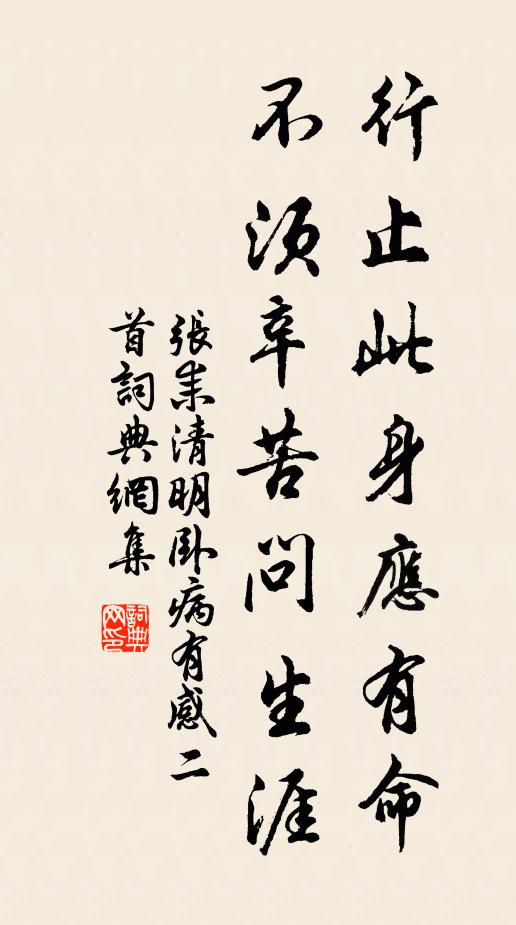 行止此身應有命
不須辛苦問生涯
張耒清明臥病有感二
首詞典網集
詞典
网印